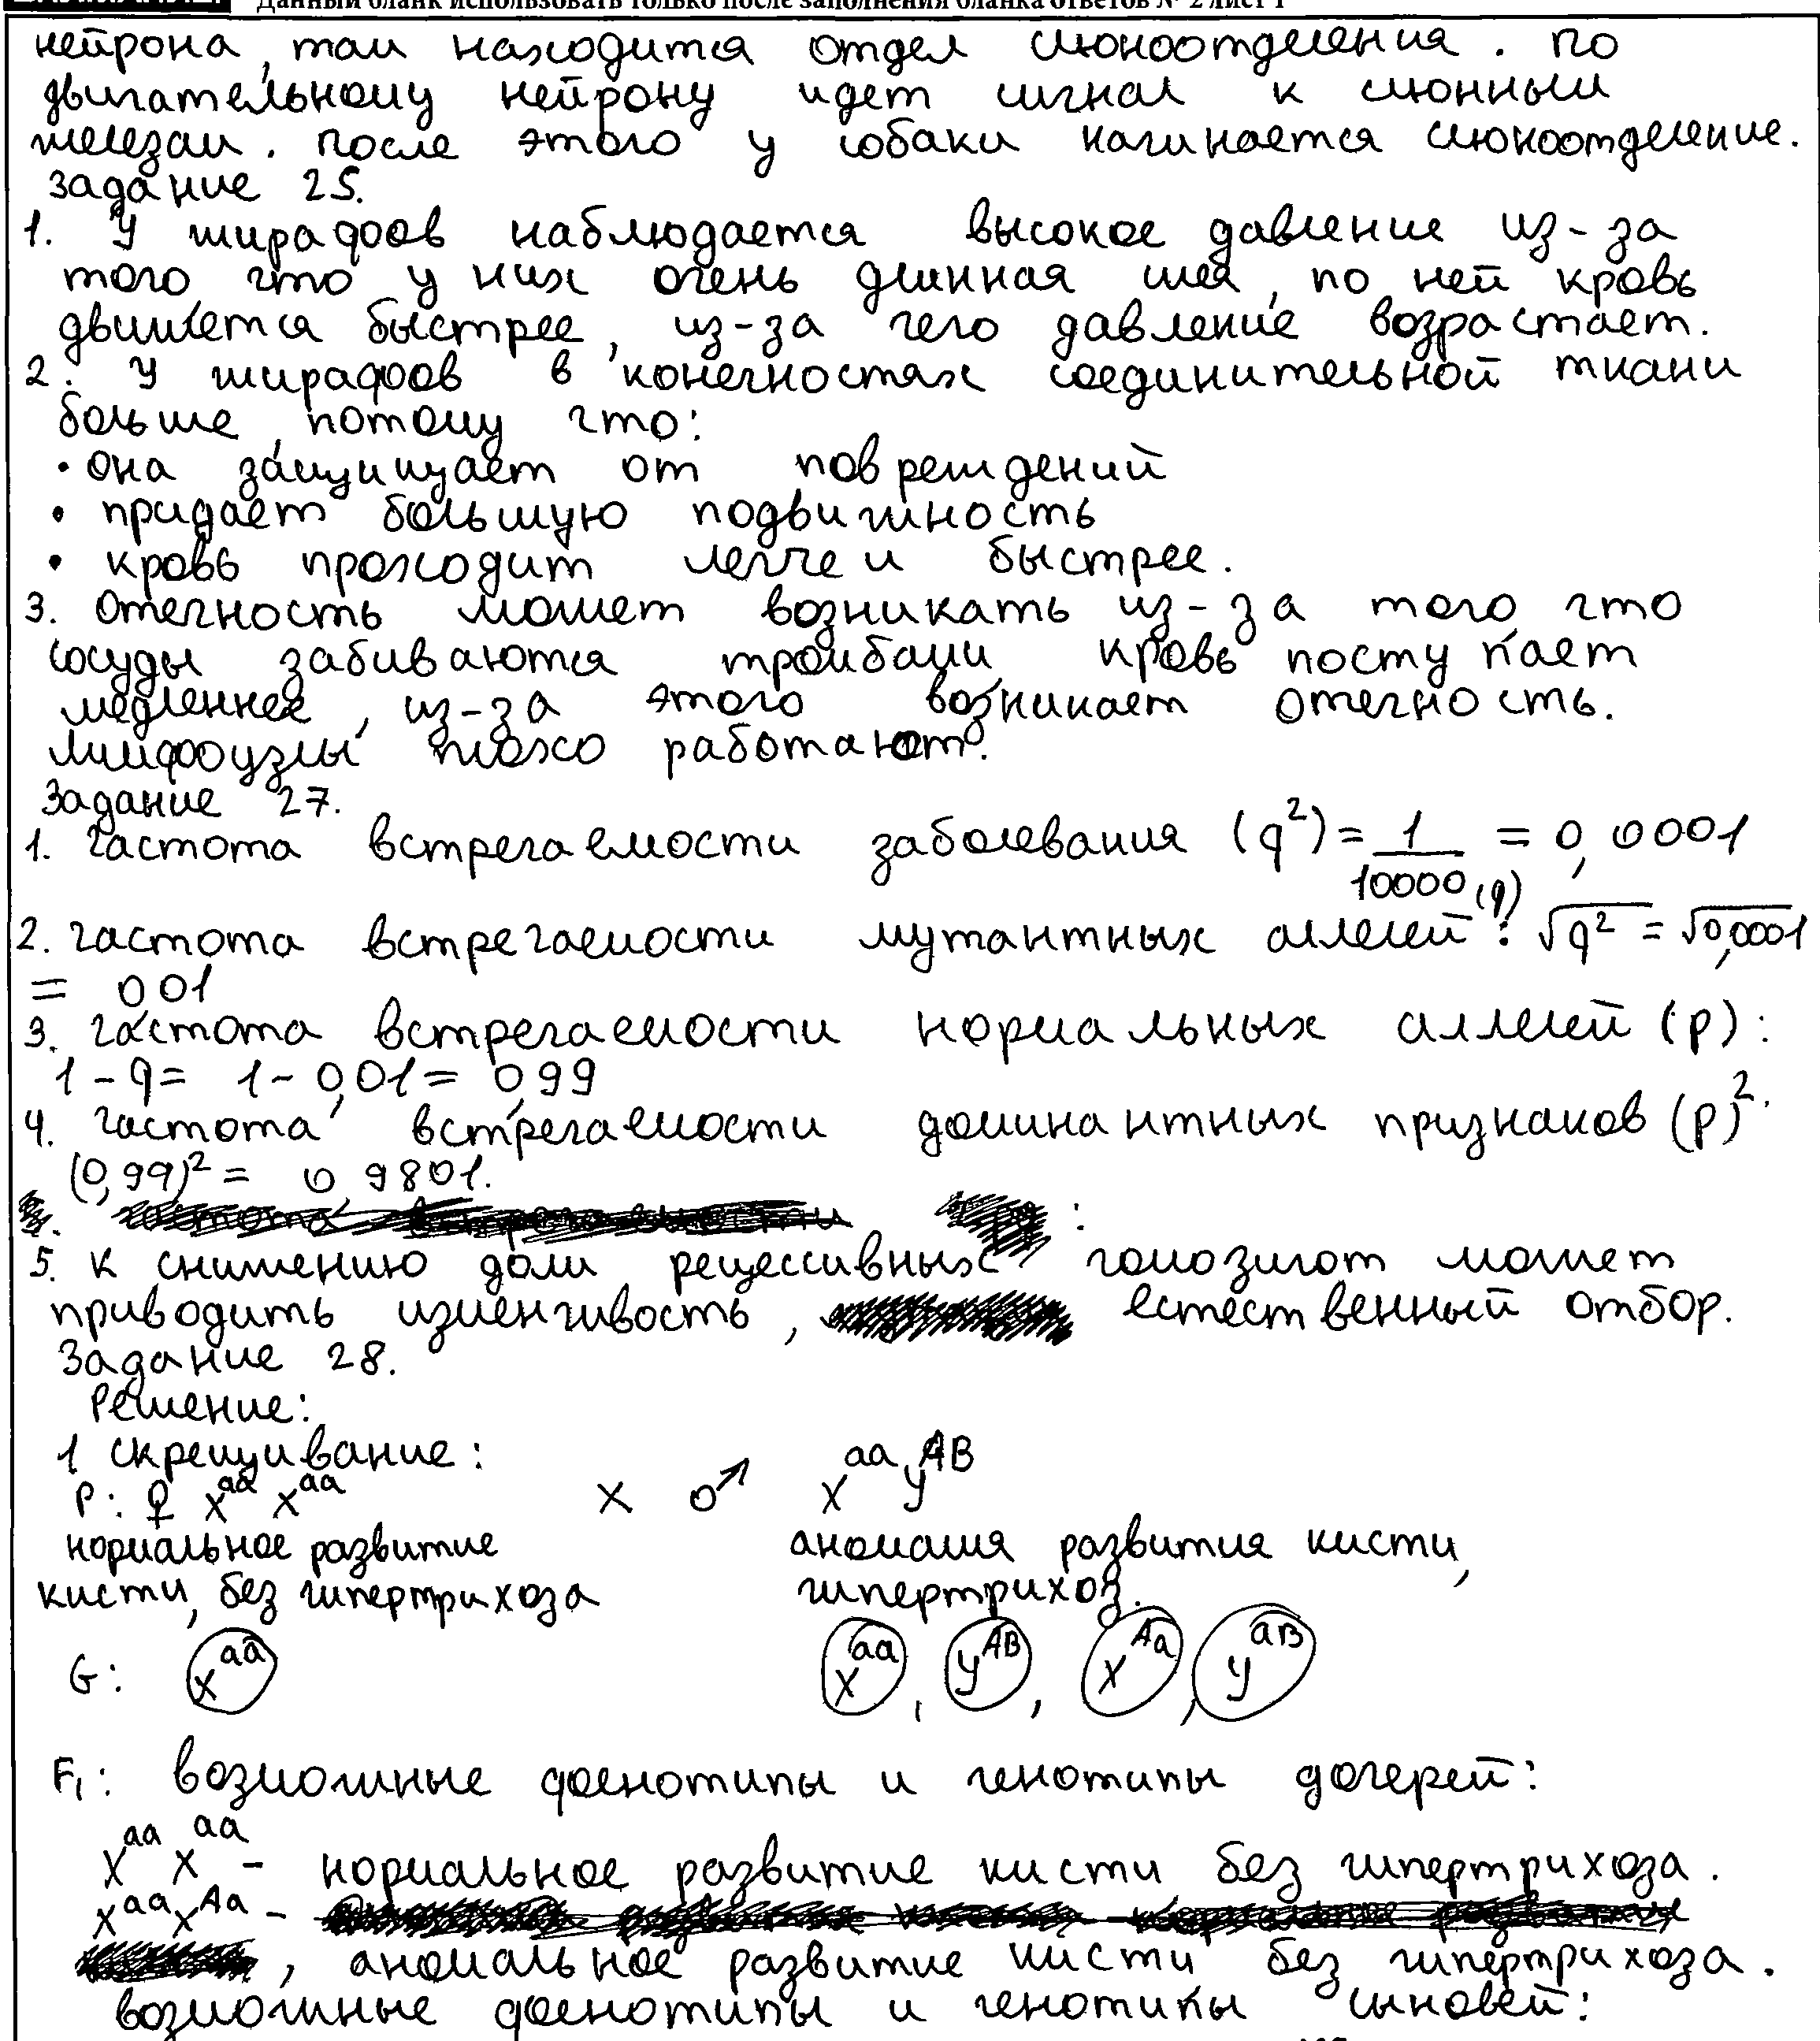 Данный бланк использовать только после заполнения бланка ответов № 2 лист 1
нейрона, там находится отдел слюноотделения. По
двигательному нейрону идет сигнал к слюнным
железам. После этого у собаки начинается слюноотделение.
Задание 25.
1. У жирафов наблюдается высокое давление из-за
того что у них очень длинная шея, по ней кровь
движется быстрее, из-за чего давление возрастает.
2. У жирафов в конечностях соединительной ткани
больше, потому что:
• она защищает от повреждений
• придаёт большую подвижность
• кровь проходит легче и быстрее.
3. Отечность может возникать из-за того что
сосуды забиваются тромбами, кровь поступает
медленнее, из-за этого возникает отечность.
Лимфоузлы плохо работают.
Задание 27.
1. Частота встречаемости заболевания (q²) = 1/10000 = 0,0001
2. Частота встречаемости мутантных аллелей (q): √q² = √0,0001
= 0,01
3. Частота встречаемости нормальных аллелей (p):
1 - q = 1 - 0,01 = 0,99
4. Частота встречаемости доминантных признаков (p)².
(0,99)² = 0,9801.
5. К снижению доли рецессивных гомозигот может
приводить изменчивость, естественный отбор.
Задание 28.
Решение:
1 скрещивание:
P: ♀ X^aa X^aa × ♂ X^aa Y^AB
нормальное развитие аномалия развития кисти,
кисти, без гипертрихоза гипертрихоз.
G: X^aa X^aa, Y^AB, X^Aa, Y^aB
F₁: возможные фенотипы и генотипы дочерей:
X^aa X^aa - нормальное развитие кисти без гипертрихоза.
X^aa X^Aa -
, аномальное развитие кисти без гипертрихоза.
возможные фенотипы и генотипы сыновей: